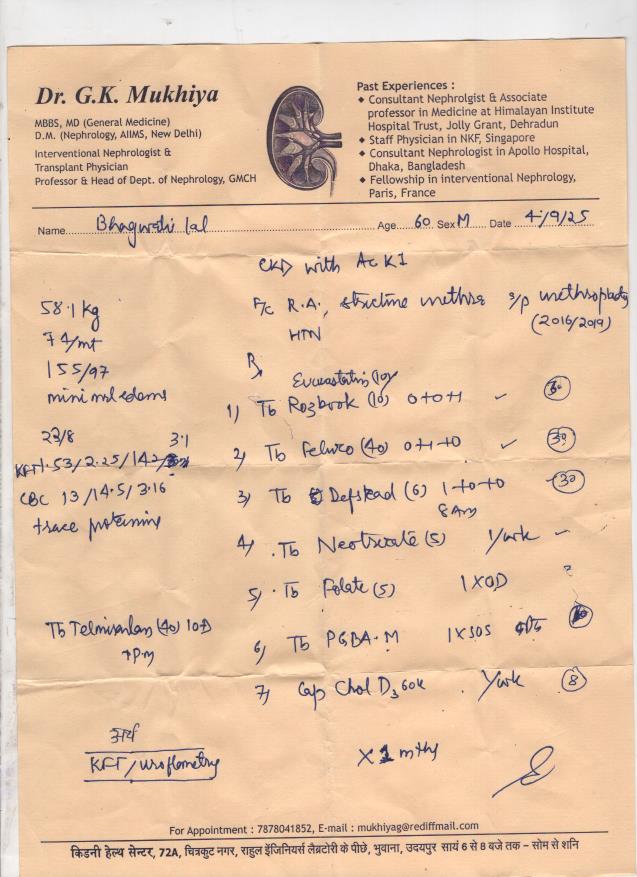 Dr. G.K. Mukhiya
MBBS, MD (General Medicine)
D.M. (Nephrology, AIIMS, New Delhi)
Interventional Nephrologist &
Transplant Physician
Professor & Head of Dept. of Nephrology, GMCH
Past Experiences :
◆ Consultant Nephrolgist & Associate
professor in Medicine at Himalayan Institute
Hospital Trust, Jolly Grant, Dehradun
◆ Staff Physician in NKF, Singapore
◆ Consultant Nephrologist in Apollo Hospital,
Dhaka, Bangladesh
◆ Fellowship in interventional Nephrology,
Paris, France
Name Bhagwati lal Age 60 Sex M Date 4/9/25
CKD with AcKI
58.1 kg
74/mt
155/97
minimal edema
F/c R.A., stricture urethra s/p urethroplasty
(2016/2019)
HTN
Rx
23/8 3.1
KFT 1.53/2.25/142/
CBC 13/14.5/3.16
trace proteinuria
(10)
1) Tb Rozbook (10) 0+0+1 30
2) Tb (40) 0+1+0 30
3) Tb (6) 1+0+0 30
8 Am
4) Tb (5)
5) Tb Folate (5) 1XOD
6) Tb PGBA-M 1XSOS
7) Cap Chol D3 60K 8
Tb Telmisartan (40) 1OD
7Pm
KFT/uroflometry
X 1 mths
For Appointment : 7878041852, E-mail : mukhiyag@rediffmail.com
किडनी हेल्थ सेन्टर, 72A, चित्रकुट नगर, राहुल इंजिनियर्स लैब्रटोरी के पीछे, भुवाना, उदयपुर सायं 6 से 8 बजे तक – सोम से शनि